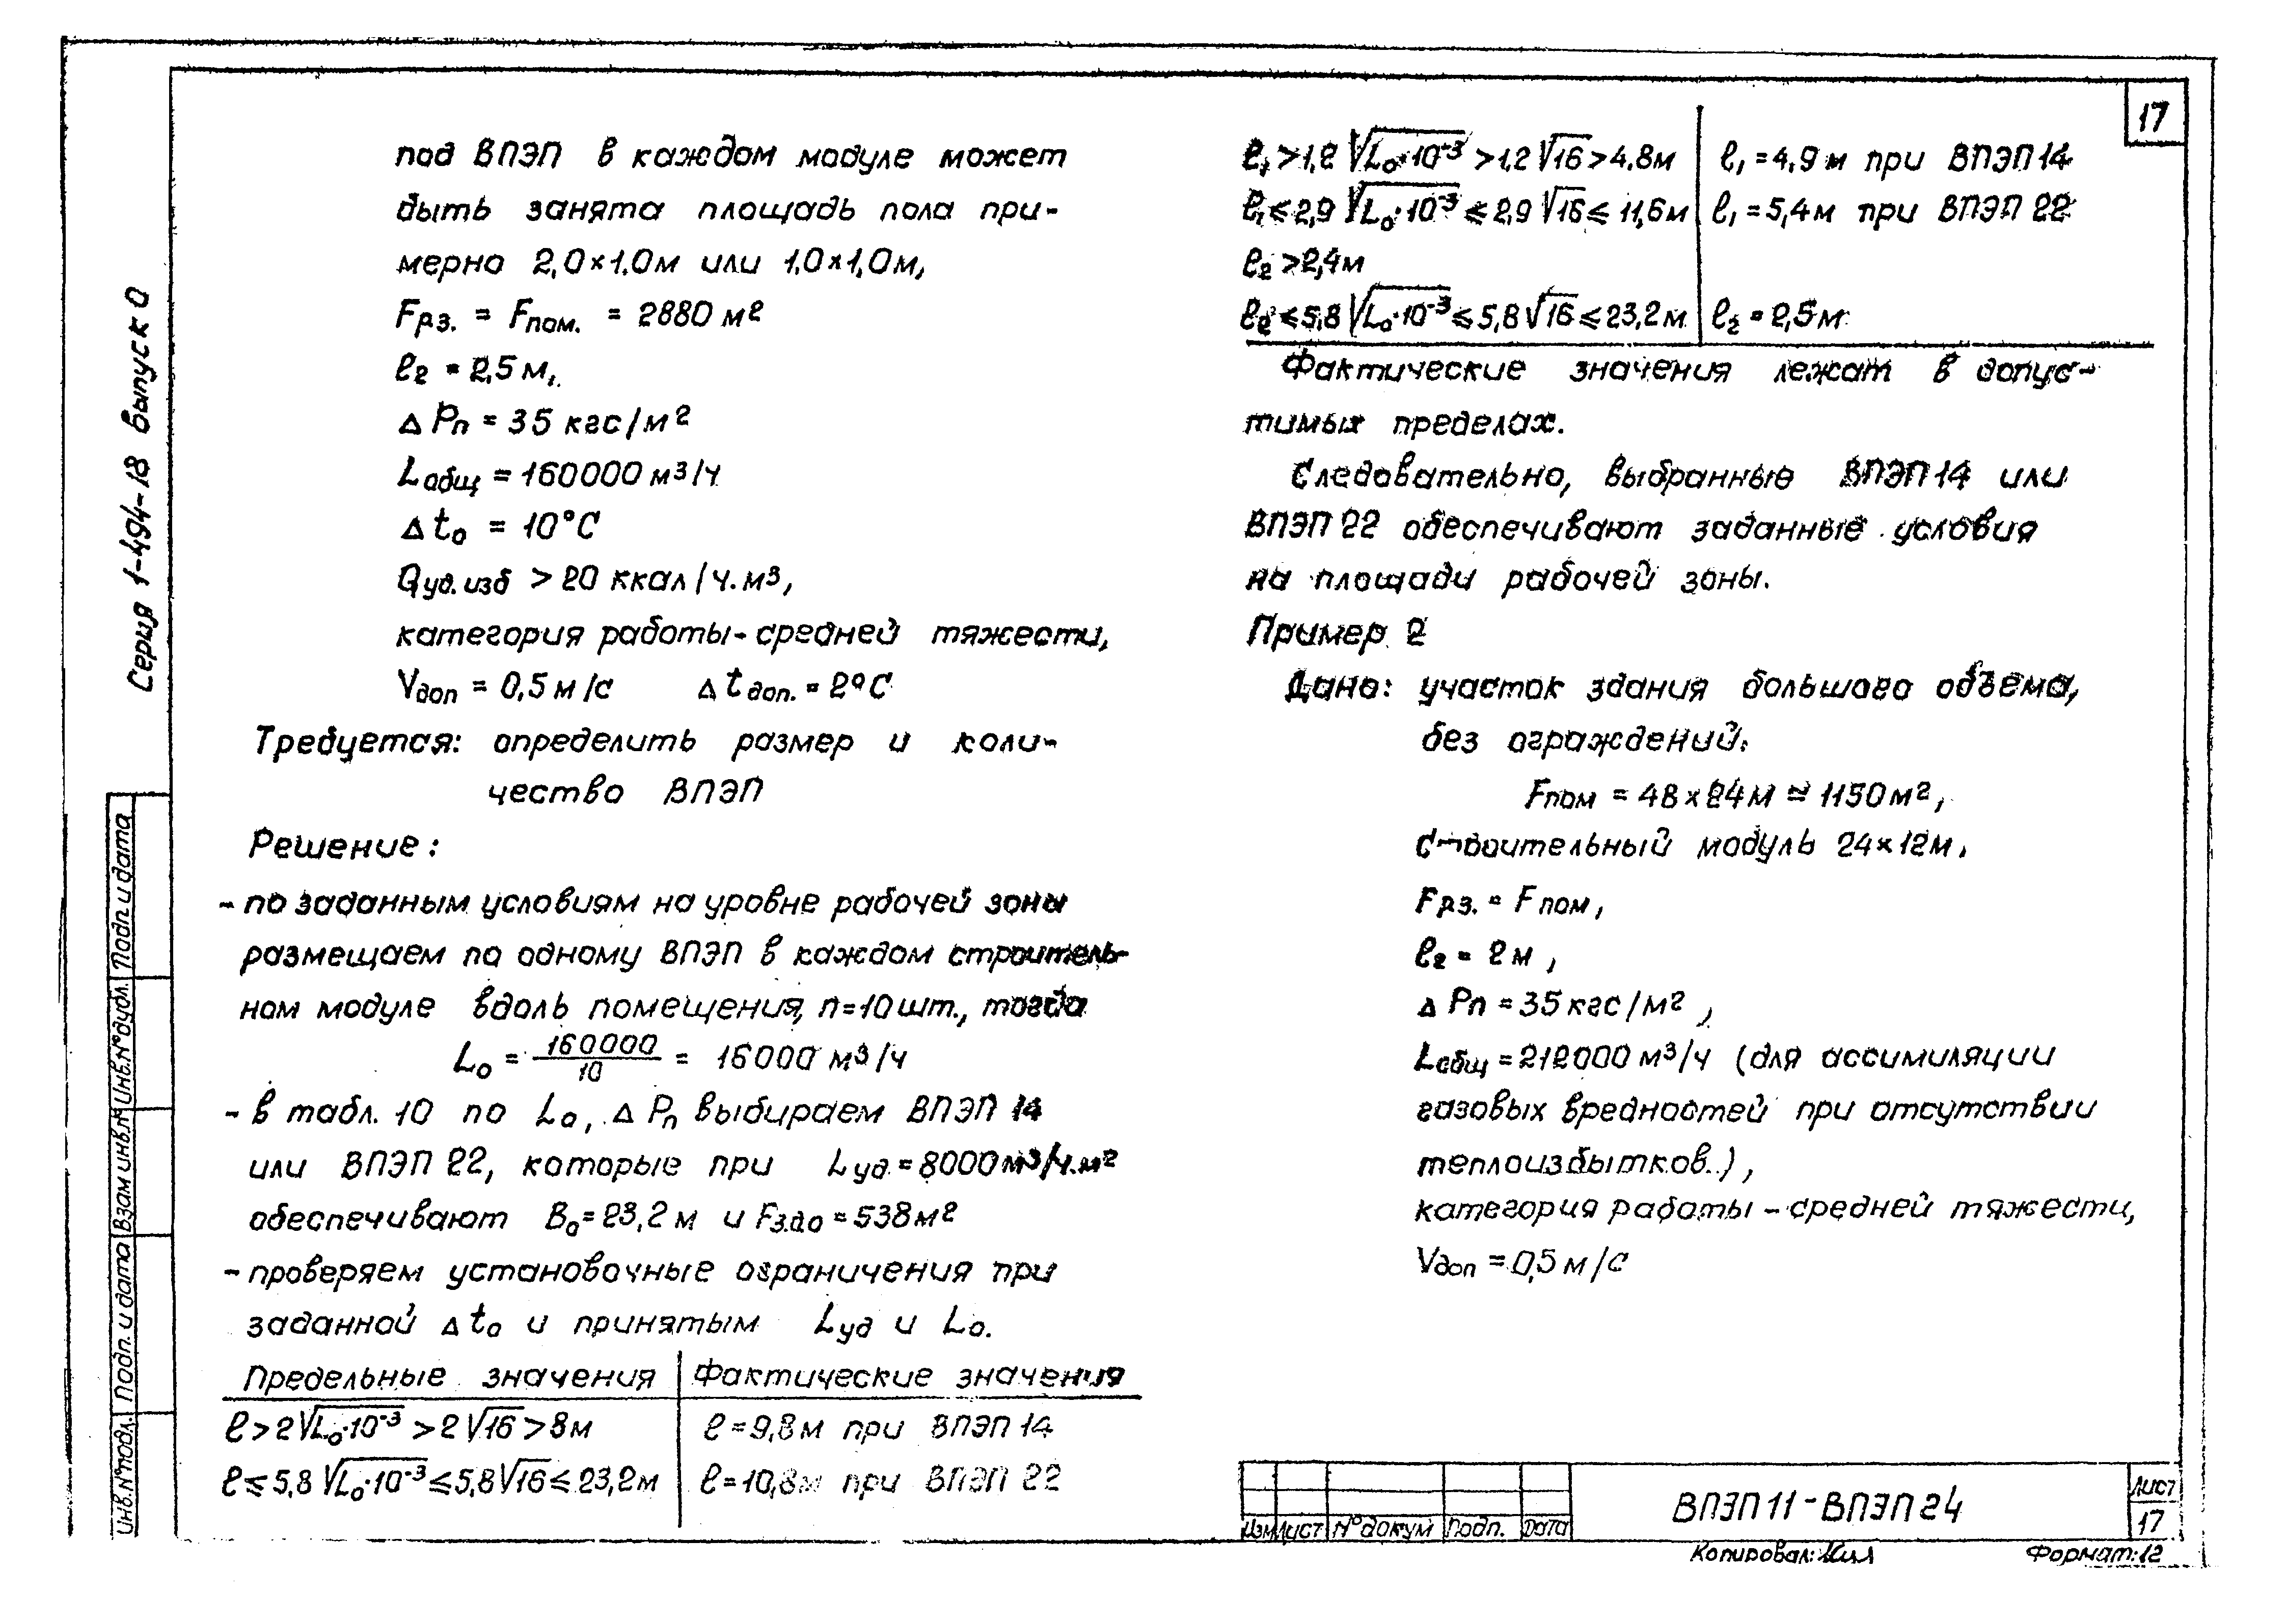 17
под ВПЭП в каждом модуле может
быть занята площадь пола при-
мерно 2,0×1,0м или 1,0×1,0м,
Fр.з. = Fпом. = 2880 м²
ℓ₂ = 2,5 м,
Δ Pп = 35 кгс/м²
Lобщ = 160000 м³/ч
Δ t₀ = 10°С
Qуд.изб > 20 ккал/ч.м³,
категория работы- средней тяжести,
Vдоп = 0,5 м/с Δ tдоп. = 2°С
Требуется: определить размер и коли-
чество ВПЭП
Решение:
- по заданным условиям на уровне рабочей зоны
размещаем по одному ВПЭП в каждом строитель-
ном модуле вдоль помещения, n=10 шт., тогда
L₀ = 160000/10 = 16000 м³/ч
- в табл. 10 по L₀, Δ Pп выбираем ВПЭП 14
или ВПЭП 22, которые при Lуд = 8000 м³/ч.м²
обеспечивают B₀=23,2 м и Fз.д.о = 538 м²
- проверяем установочные ограничения при
заданной Δ t₀ и принятым Lуд и L₀.
Предельные значения | Фактические значения
ℓ > 2 √L₀·10⁻³ > 2 √16 > 8 м | ℓ = 9,8 м при ВПЭП 14
ℓ ≤ 5,8 √L₀·10⁻³ ≤ 5,8 √16 ≤ 23,2 м | ℓ = 10,8 м при ВПЭП 22
ℓ₁ > 1,2 √L₀·10⁻³ > 1,2 √16 > 4,8 м | ℓ₁ = 4,9 м при ВПЭП 14
ℓ₁ ≤ 2,9 √L₀·10⁻³ ≤ 2,9 √16 ≤ 11,6 м | ℓ₁ = 5,4 м при ВПЭП 22
ℓ₂ > 2,4 м
ℓ₂ ≤ 5,8 √L₀·10⁻³ ≤ 5,8 √16 ≤ 23,2 м | ℓ₂ = 2,5 м
Фактические значения лежат в допус-
тимых пределах.
Следовательно, выбранные ВПЭП 14 или
ВПЭП 22 обеспечивают заданные условия
на площади рабочей зоны.
Пример 2
Дано: участок здания большого объема,
без ограждений:
Fпом = 48 × 24 м ≅ 1150 м²,
Строительный модуль 24×12м,
Fр.з. = Fпом,
ℓ₂ = 2 м,
Δ Pп = 35 кгс/м²,
Lобщ = 212000 м³/ч (для ассимиляции
газовых вредностей при отсутствии
теплоизбытков.),
категория работы - средней тяжести,
Vдоп = 0,5 м/с
Серия 1-494-18 Выпуск 0
Инв.N°подл. Подп. и дата Взам инв.N Инв.N°дубл. Подп. и дата
Изм Лист N°докум Подп. Дата
ВПЭП 11 - ВПЭП 24
Лист
17
Копировал:
Формат: 12